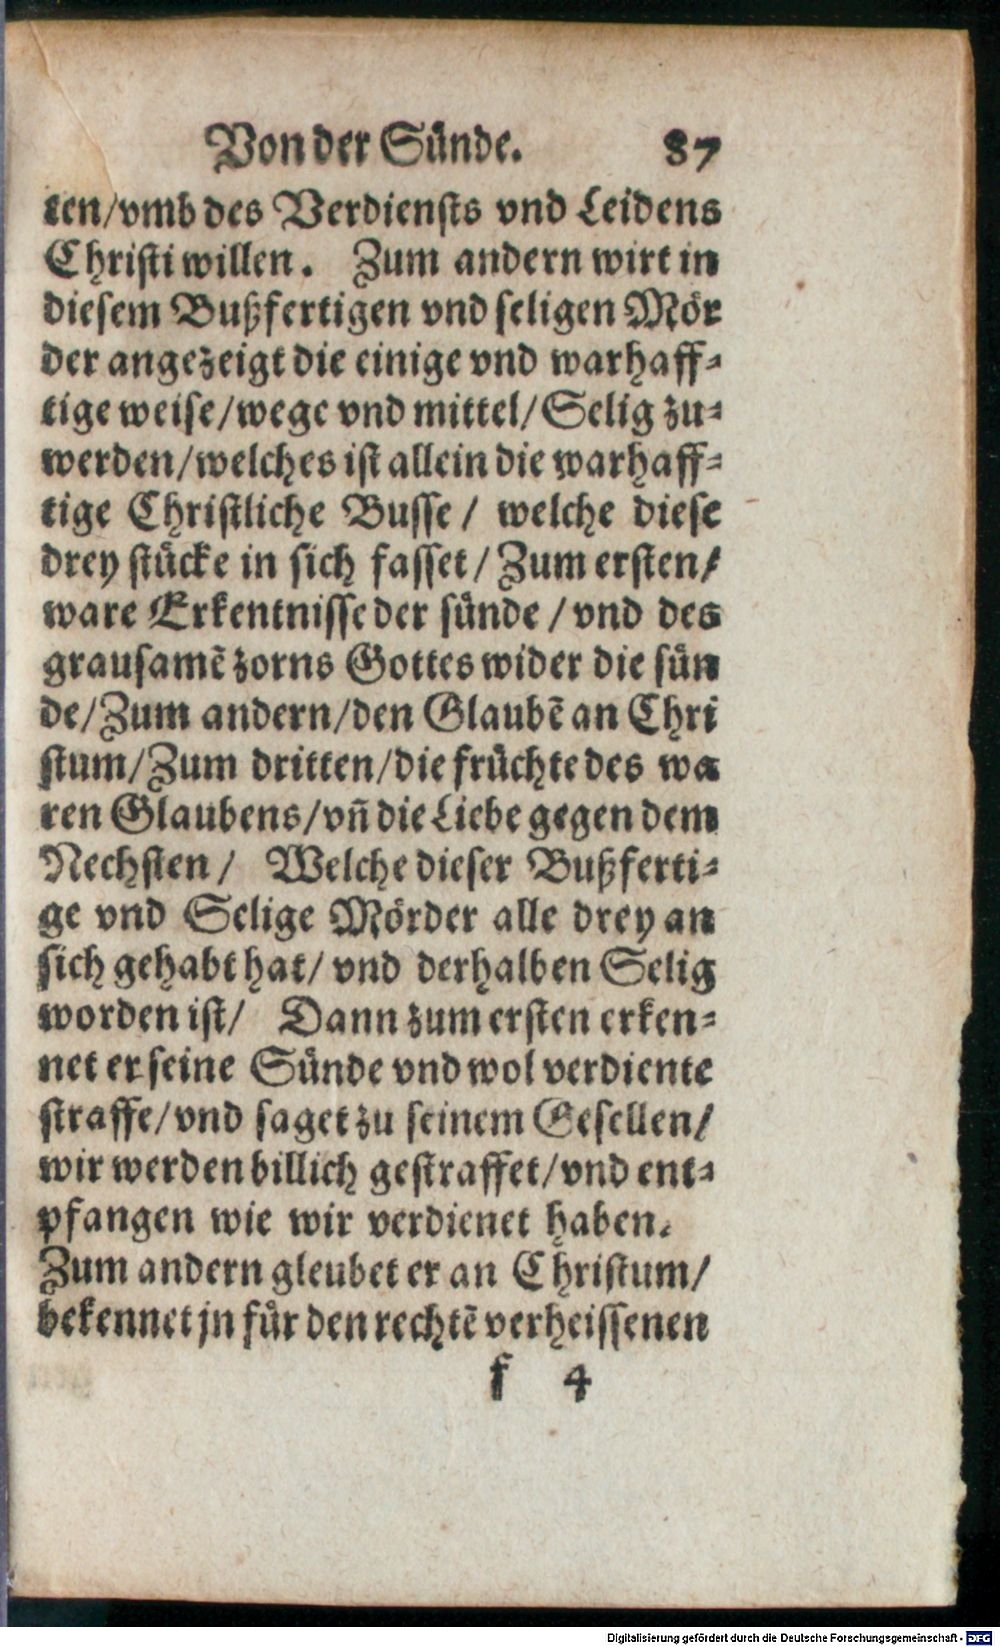 Von der Sünde. 87
ten/vmb des Verdiensts vnd Leidens
Christi willen. Zum andern wirt in
diesem Bußfertigen vnd seligen Mör
der angezeigt die einige vnd warhaff-
tige weise/wege vnd mittel/Selig zu-
werden/welches ist allein die warhaff-
tige Christliche Busse/ welche diese
drey stücke in sich fasset/Zum ersten/
ware Erkentnisse der sünde/vnd des
grausamẽ zorns Gottes wider die sün
de/Zum andern/den Glaubẽ an Chri
stum/Zum dritten/die früchte des wa
ren Glaubens/vñ die Liebe gegen dem
Nechsten/ Welche dieser Bußferti-
ge vnd Selige Mörder alle drey an
sich gehabt hat/vnd derhalben Selig
worden ist/ Dann zum ersten erken-
net er seine Sünde vnd wol verdiente
straffe/vnd saget zu seinem Gesellen/
wir werden billich gestraffet/vnd ent-
pfangen wie wir verdienet haben.
Zum andern gleubet er an Christum/
bekennet jn für den rechtẽ verheissenen
f 4
Digitalisierung gefördert durch die Deutsche Forschungsgemeinschaft - DFG